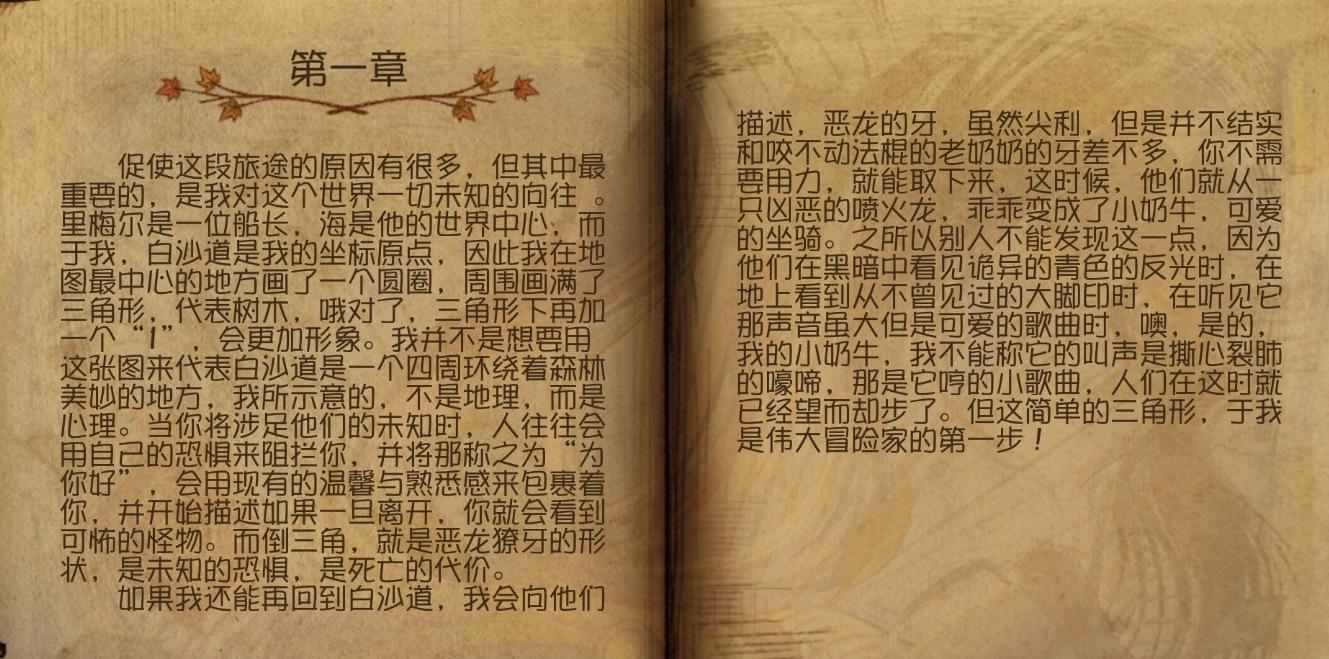 第一章
促使这段旅途的原因有很多，但其中最
重要的，是我对这个世界一切未知的向往 。
里梅尔是一位船长，海是他的世界中心，而
于我，白沙道是我的坐标原点，因此我在地
图最中心的地方画了一个圆圈，周围画满了
三角形，代表树木，哦对了，三角形下再加
一个“1”，会更加形象。我并不是想要用
这张图来代表白沙道是一个四周环绕着森林
美妙的地方，我所示意的，不是地理，而是
心理。当你将涉足他们的未知时，人往往会
用自己的恐惧来阻拦你，并将那称之为“为
你好”，会用现有的温馨与熟悉感来包裹着
你，并开始描述如果一旦离开，你就会看到
可怖的怪物。而倒三角，就是恶龙獠牙的形
状，是未知的恐惧，是死亡的代价。
如果我还能再回到白沙道，我会向他们
描述，恶龙的牙，虽然尖利，但是并不结实
和咬不动法棍的老奶奶的牙差不多，你不需
要用力，就能取下来，这时候，他们就从一
只凶恶的喷火龙，乖乖变成了小奶牛，可爱
的坐骑。之所以别人不能发现这一点，因为
他们在黑暗中看见诡异的青色的反光时，在
地上看到从不曾见过的大脚印时，在听见它
那声音虽大但是可爱的歌曲时，噢，是的，
我的小奶牛，我不能称它的叫声是撕心裂肺
的嚎啼，那是它哼的小歌曲，人们在这时就
已经望而却步了。但这简单的三角形，于我
是伟大冒险家的第一步！